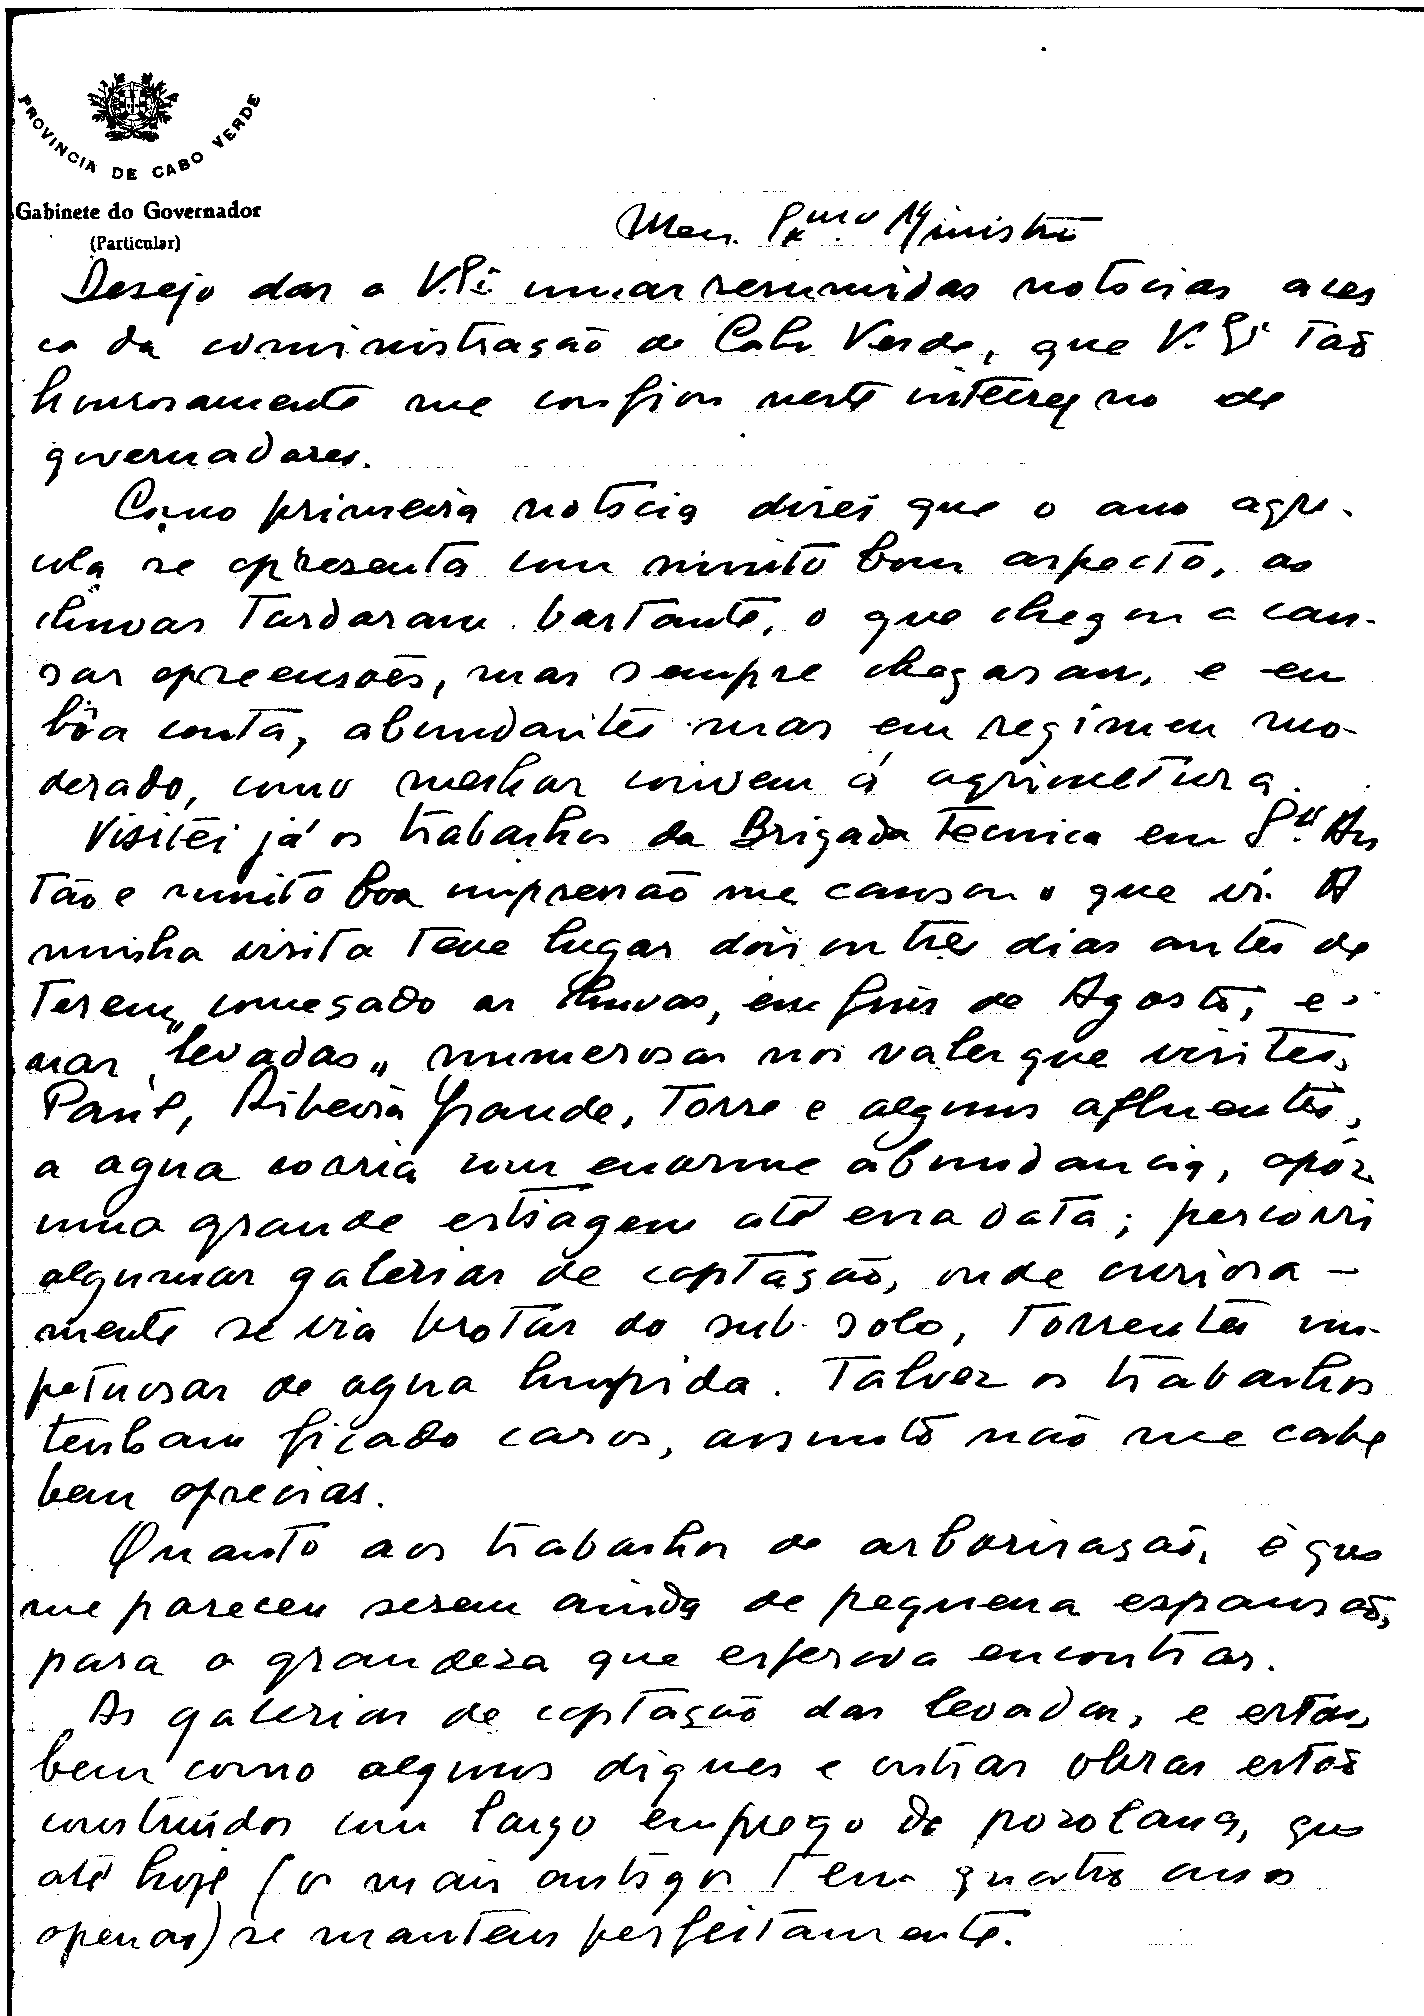 PROVINCIA DE CABO VERDE
Gabinete do Governador
(Particular)
Meu Exmo Ministro
Desejo dar a V. Exª umas resumidas noticias acer
ca da administração de Cabo Verde, que V. Exª tão
honrosamente me confiou neste interregno de
governadores.
Como primeira noticia direi que o ano agri-
cola se apresenta com muito bom aspecto, as
chuvas tardaram bastante, o que chegou a cau-
sar apreensões, mas sempre chegaram, e em
bôa conta, abundantes mas em regimen mo-
derado, como melhor convem á agricultura.
Visitei já os trabalhos da Brigada Tecnica em Stº An
tão e muito boa impressão me causou o que vi. A
minha visita teve lugar dois ou três dias antes de
terem começado as chuvas, em fins de Agosto, e
nas "levadas" numerosas nos vales que visitei,
Paúl, Ribeira Grande, Torre e alguns afluentes,
a agua corria com enorme abundancia, após
uma grande estiagem até essa data; percorri
algumas galerias de captação, onde curiosa-
mente se via brotar do sub-solo, torrentes im-
petuosas de agua limpida. Talvez os trabalhos
tenham ficado caros, assunto não me cabe
bem apreciar.
Quanto aos trabalhos de arborisação, é que
me pareceu serem ainda de pequena expansão,
para a grandeza que esperava encontrar.
As galerias de captação das levadas, e estas,
bem como alguns diques e outras obras estão
construidos com largo emprego de pozolana, que
até hoje (os mais antigos tem quatro anos
apenas) se mantem perfeitamente.